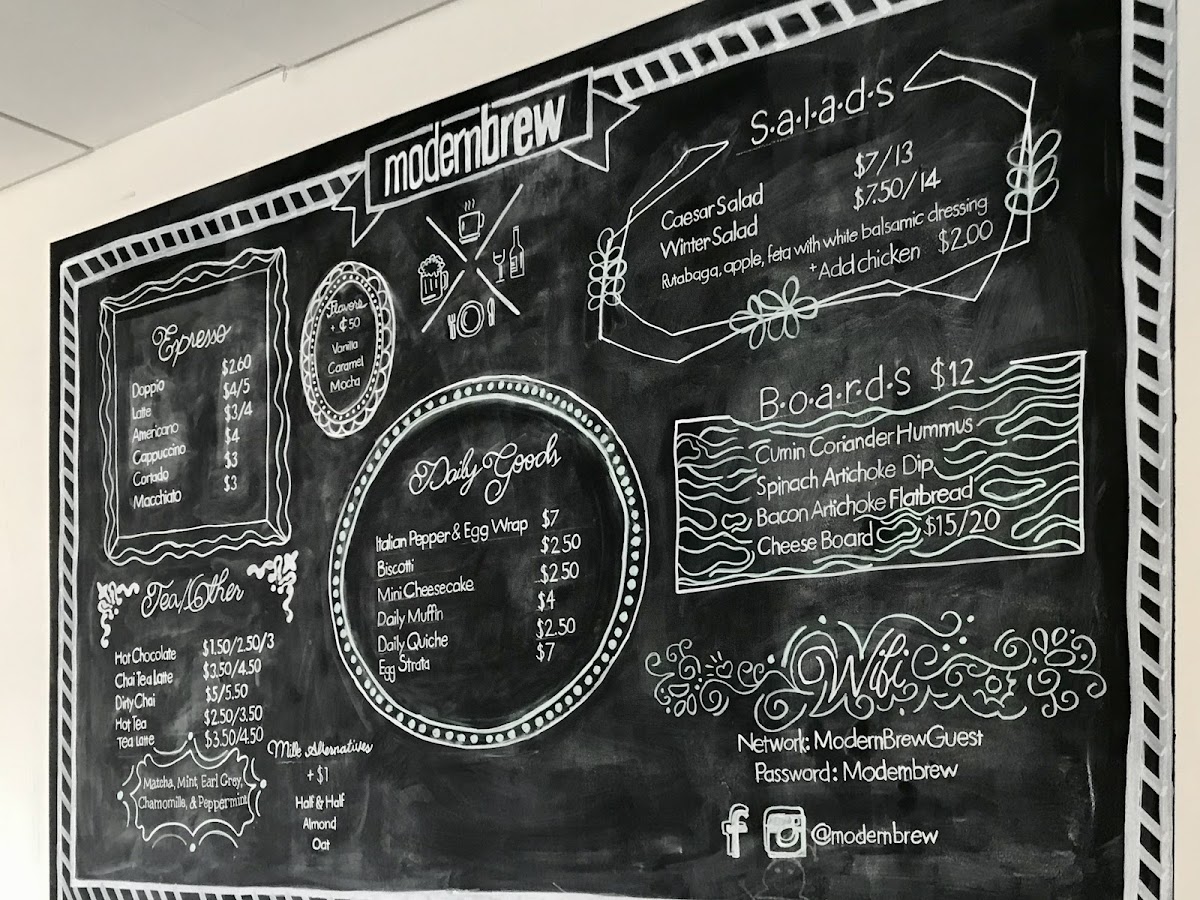 modernbrew
Epresso
Doppio $2.60
Latte $4/5
Americano $3/4
Cappuccino $4
Cortado $3
Macchiato $3
Flavors
+ ¢50
Vanilla
Caramel
Mocha
Tea/Other
Hot Chocolate $1.50/2.50/3
Chai Tea Latte $3.50/4.50
Dirty Chai $5/5.50
Hot Tea $2.50/3.50
Tea Latte $3.50/4.50
Matcha, Mint, Earl Grey,
Chamomille, & Peppermint
Milk Alternatives
+ $1
Half & Half
Almond
Oat
Daily Goods
Italian Pepper & Egg Wrap $7
Biscotti $2.50
Mini Cheesecake $2.50
Daily Muffin $4
Daily Quiche $2.50
Egg Strata $7
S·a·l·a·d·s
Caesar Salad $7/13
Winter Salad $7.50/14
Rutabaga, apple, feta with white balsamic dressing
+Add chicken $2.00
B·o·a·r·d·s $12
Cumin Coriander Hummus
Spinach Artichoke Dip
Bacon Artichoke Flatbread
Cheese Board $15/20
Wifi
Network: ModernBrewGuest
Password: Modernbrew
f @modernbrew